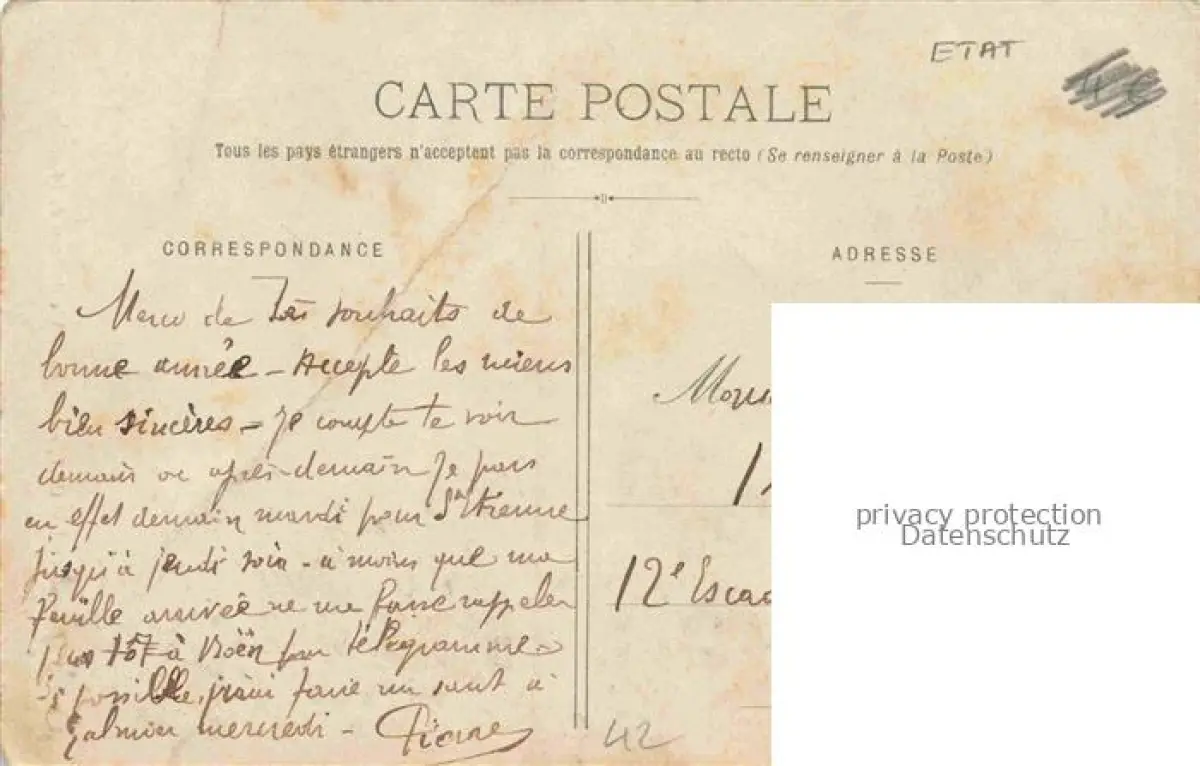 ETAT
CARTE POSTALE
Tous les pays étrangers n'acceptent pas la correspondance au recto (Se renseigner à la Poste)
D
CORRESPONDANCE
ADRESSE
Merci de tes souhaits de
bonne année - Accepte les miens
bien sincères - Je compte te voir
demain ou après-demain Je pars
en effet demain mardi pour St Etienne
jusqu'à jeudi soir - à moins que ma
feuille arrivée ne me fasse rappeler
à Boën par télégramme
si possible, j'irai faire un saut à
Galmier mercredi - Pierre
Mons
12e Escad
42
privacy protection
Datenschutz